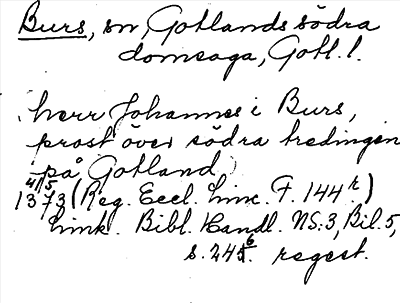 Burs, sn, Gotlands södra
domsaga, Gotl. l.
herr Johannes i Burs,
prost över södra tredingen
på Gotland
4/5
1373 (Reg. Eccl. Linc. F. 144r)
Link. Bibl. Handl. NS:3, Bil. 5,
s. 246. regest.